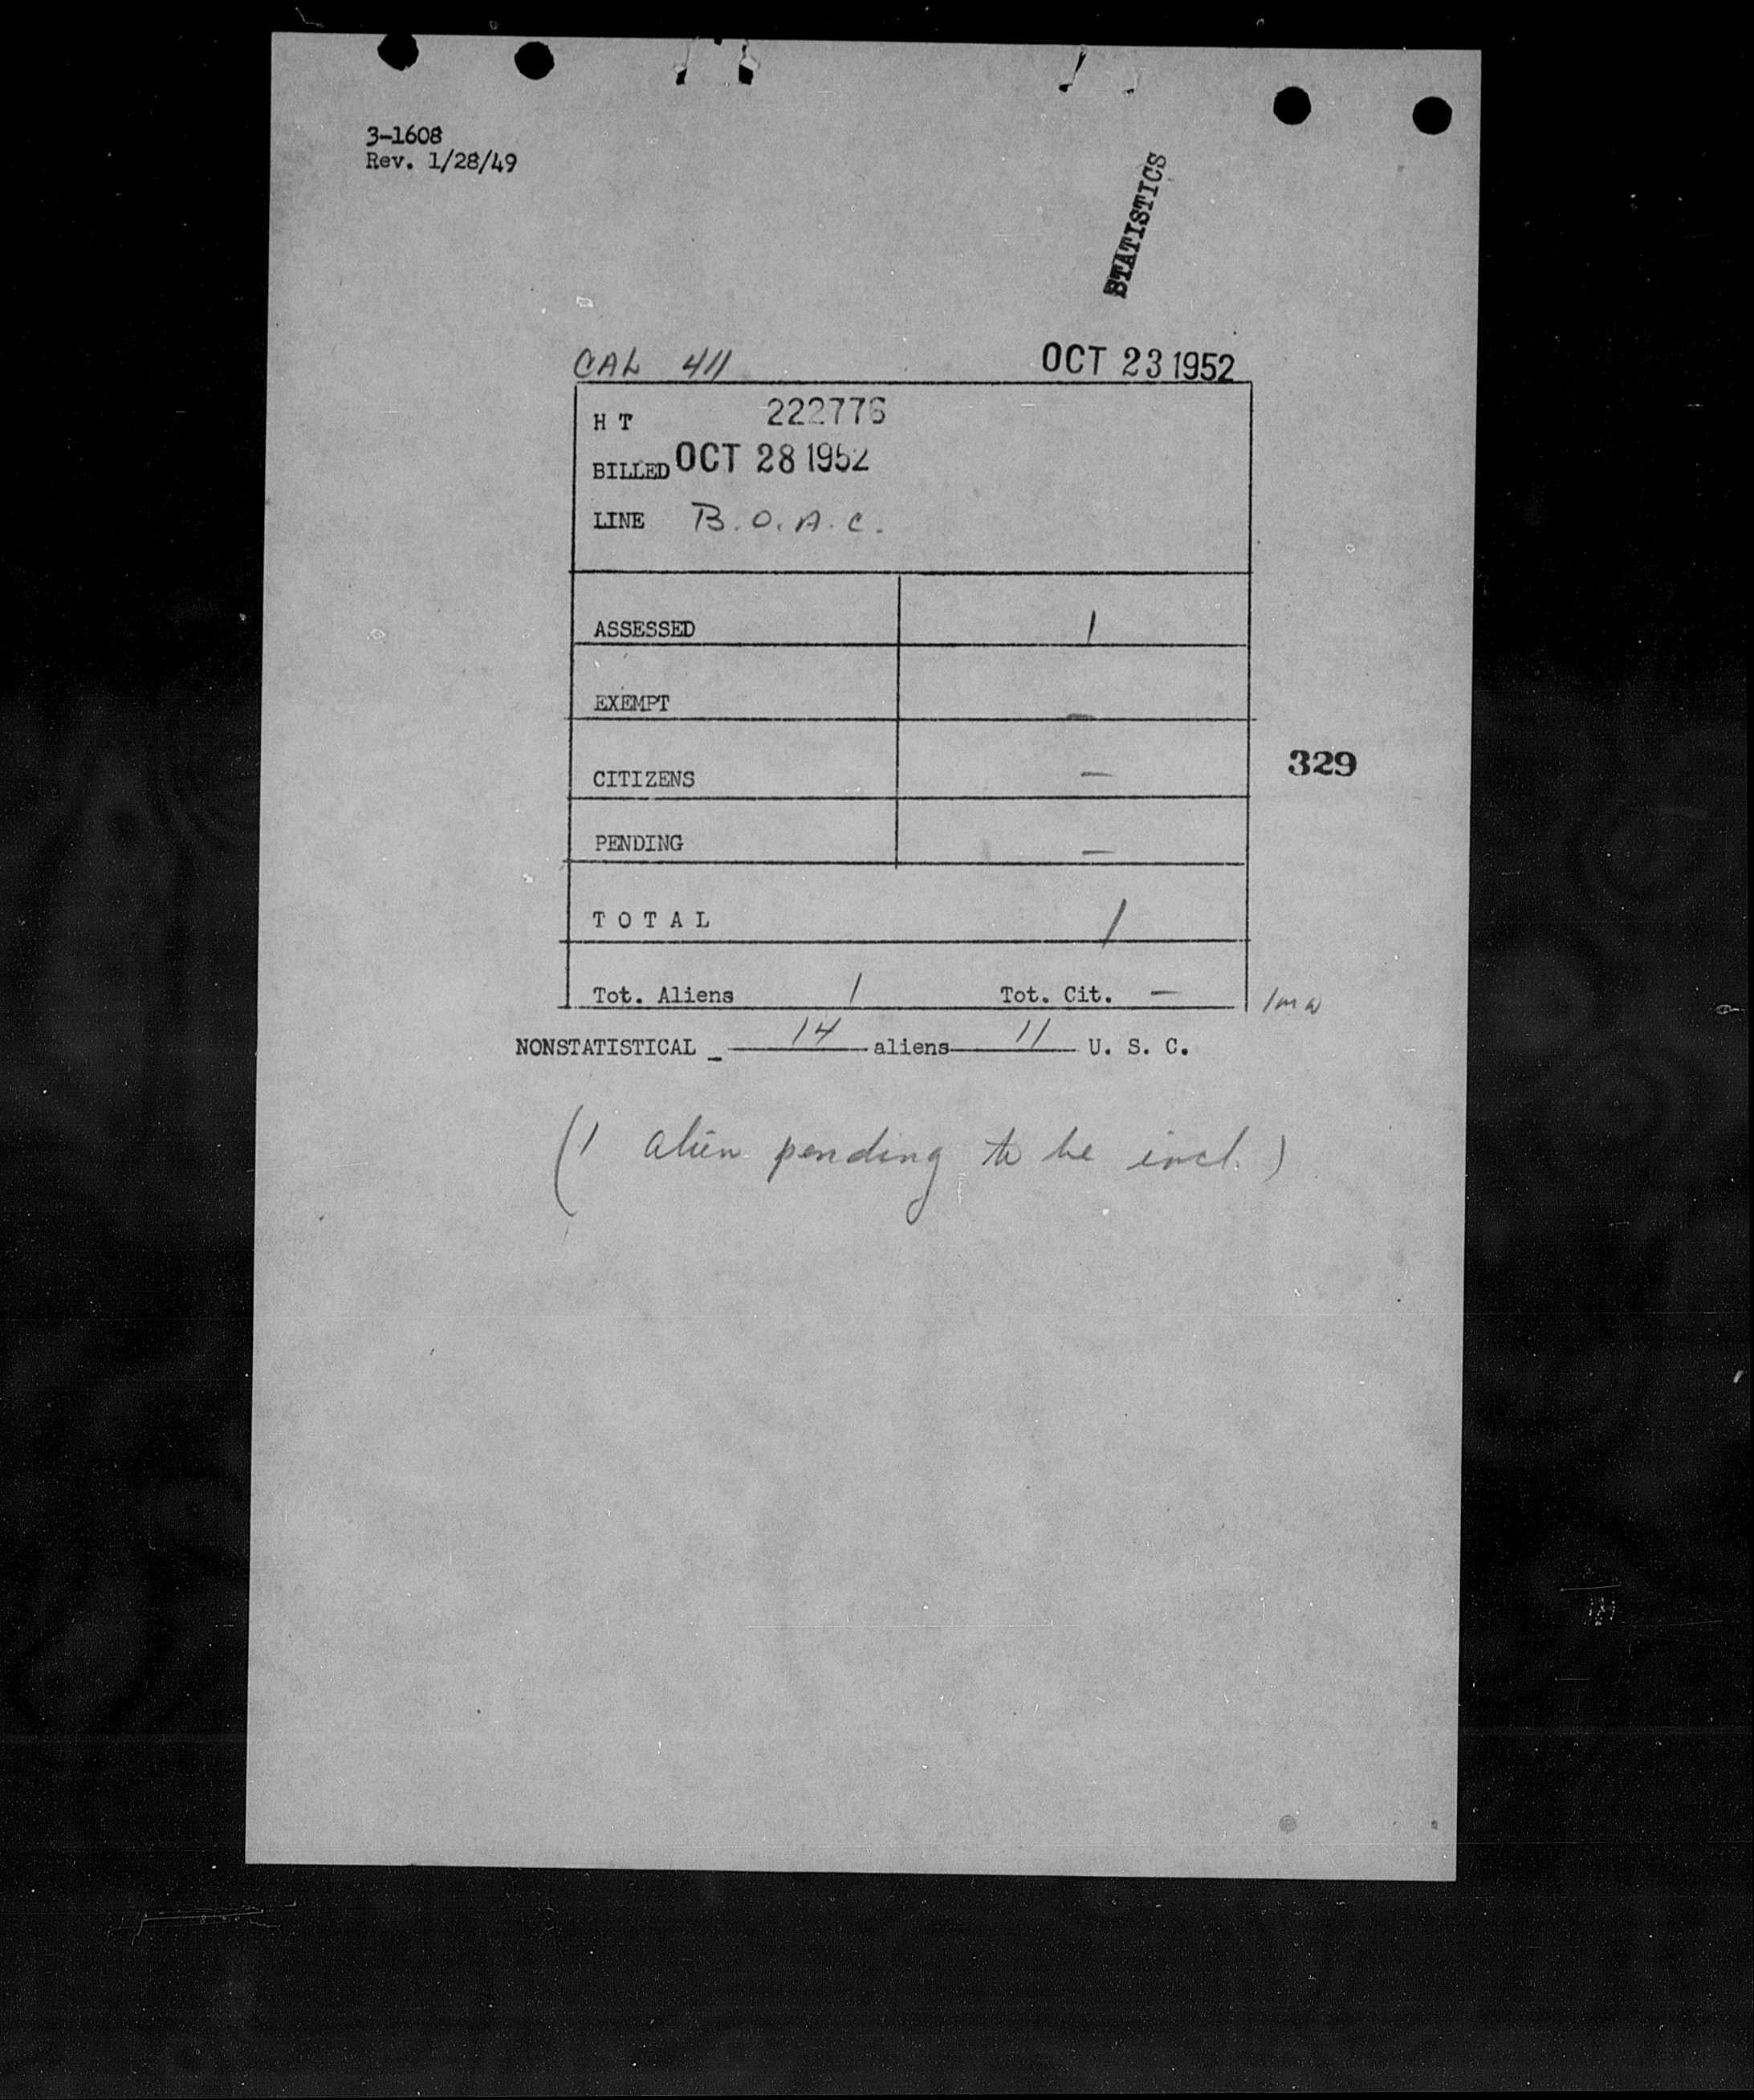 3-1608
Rev. 1/28/49
STATISTICS
CAL 411 OCT 23 1952
H T 222776
BILLED OCT 28 1952
LINE B.O.A.C.
ASSESSED 1
EXEMPT —
CITIZENS —
329
PENDING —
T O T A L 1
Tot. Aliens 1 Tot. Cit. —
NONSTATISTICAL _ 14 aliens 11 U. S. C.
(1 alien pending to be incl.)